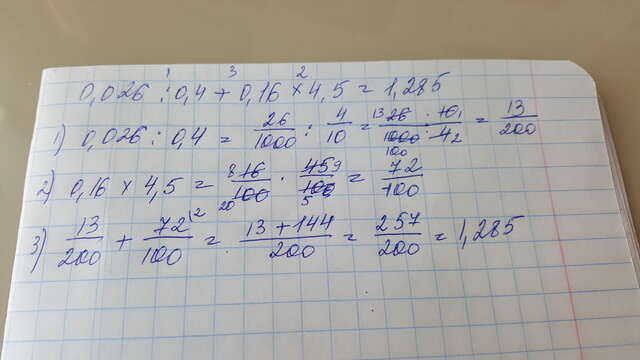 1 3 2
0,026 : 0,4 + 0,16 × 4,5 = 1,285
1) 0,026 : 0,4 = 26/1000 : 4/10 = 13 26/1000 100 · 10 1/4 2 = 13/200
2) 0,16 × 4,5 = 8 16/100 20 · 45 9/100 5 = 72/100
3) 13/200 + 72/100 (2 = 13+144/200 = 257/200 = 1,285